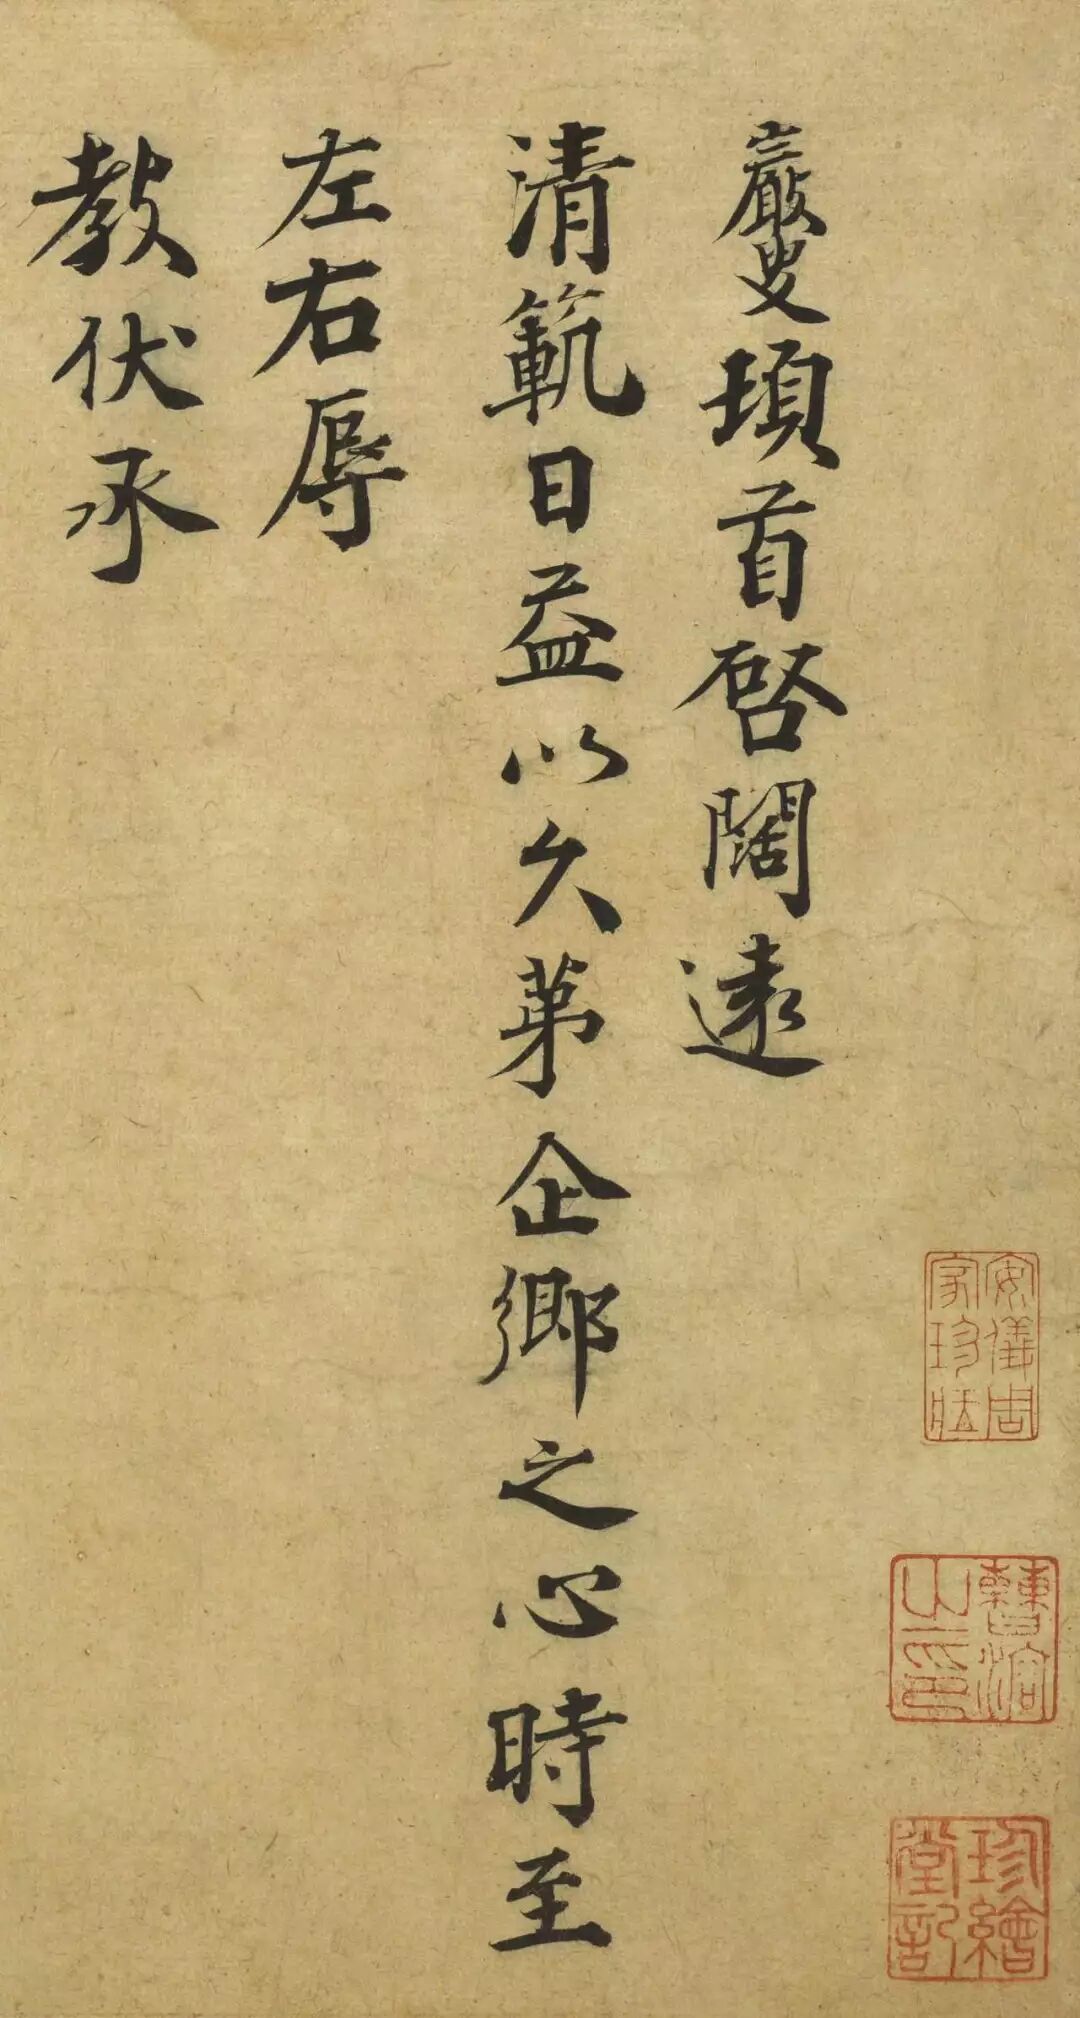 巖叟頓首啓闊遠
清範日益以久第企鄉之心時至
左右辱
教伏承
安儀周家珍藏
曹溶之印
珍繪堂記